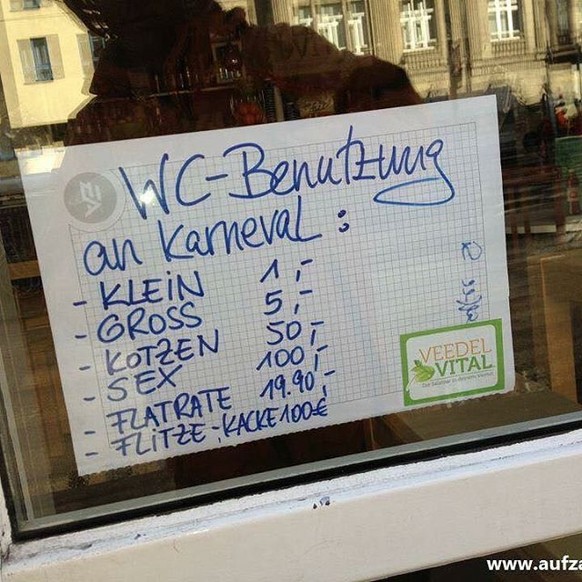 WC-Benutzung
an Karneval:
- KLEIN 1,-
- GROSS 5,-
- KOTZEN 50,-
- SEX 100,-
- FLATRATE 19.90,-
- FLITZE-KACKE 100€
VEEDEL
VITAL
www.aufza